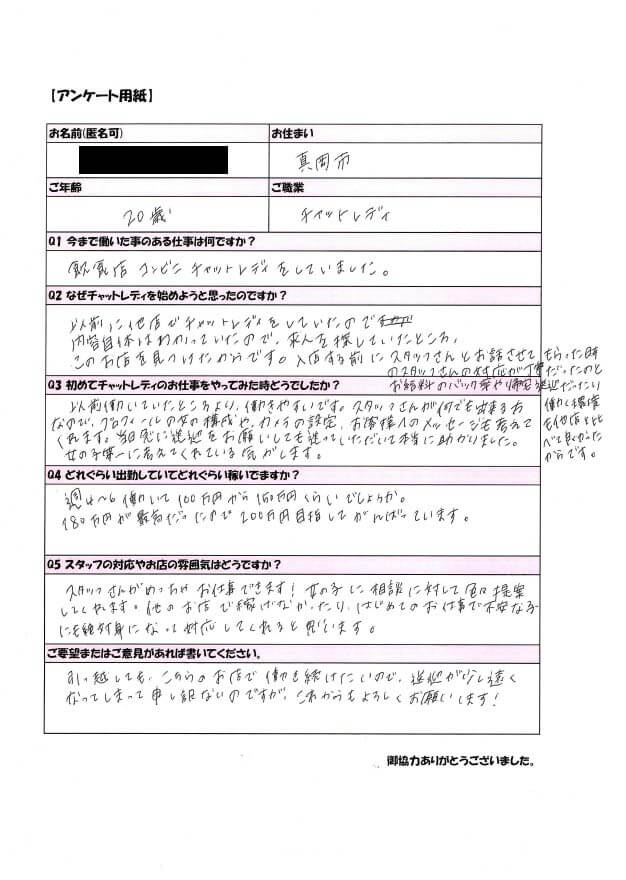 【アンケート用紙】
お名前(匿名可) お住まい
真岡市
ご年齢 ご職業
20歳 チャットレディ
Q1 今まで働いた事のある仕事は何ですか？
飲食店 コンビニ チャットレディをしていました。
Q2 なぜチャットレディを始めようと思ったのですか？
以前に他店でチャットレディをしていたので
内容自体はわかっていたので、求人を探していたところ、
このお店を見つけたからです。入店する前にスタッフさんとお話させてもらった時
のスタッフさんの対応が丁寧だったのと
お給料のバック率や
だったり
働く環境
も他店と比
べて良かった
からです。
Q3 初めてチャットレディのお仕事をやってみた時どうでしたか？
以前働いていたところより、働きやすいです。スタッフさんが何でも出来る方
なので、プロフィールの文の構成や、カメラの設定、お客様へのメッセージも考えて
くれます。当日急に送迎をお願いしても送っていただいて本当に助かりました。
女の子第一に考えてくれている気がします。
Q4 どれぐらい出勤していてどれぐらい稼いでますか？
週4~6働いて100万円から150万円くらいでしょうか。
180万円が最高だったので200万円目指してがんばっています。
Q5 スタッフの対応やお店の雰囲気はどうですか？
スタッフさんがめっちゃお仕事できます！女の子に相談に対して色々提案
してくれます。他のお店で稼げなかったり、はじめてのお仕事で不安な子
にも絶対身になって対応してくれると思います。
ご要望またはご意見があれば書いてください。
引っ越しても、こちらのお店で働き続けたいので、送迎が少し遠く
なってしまって申し訳ないのですが、これからもよろしくお願いします！
御協力ありがとうございました。